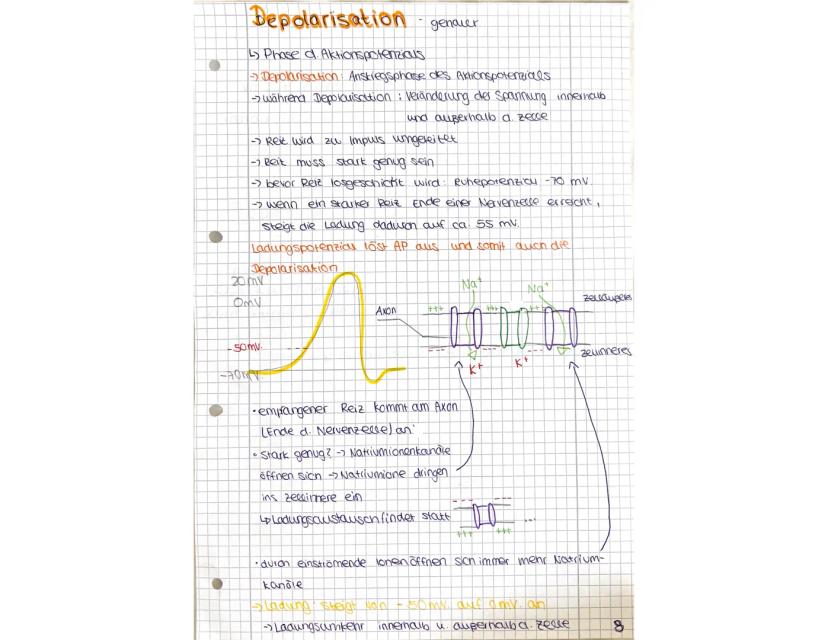 Depolarisation - genauer
↳ Phase d. Aktionspotenzials
→ Depolarisation: Anstiegsphase des Aktionspotenzials
→ während Depolarisation: Veränderung der Spannung innerhalb
und außerhalb d. Zelle
→ Reiz wird zu Impuls umgeleitet
→ Reiz muss stark genug sein
→ bevor Reiz losgeschickt wird: Ruhepotenzial -70 mV.
→ wenn ein starker Reiz Ende einer Nervenzelle erreicht,
steigt die Ladung dadurch auf ca. 55 mV.
Ladungspotenzial löst AP aus und somit auch die
Depolarisation
20mV
0mV
-50mV.
-70mV.
Axon
Na+
Na+
+++
+++
+++
Zelläußeres
---
---
Zellinneres
K+
K+
• empfangener Reiz kommt am Axon
(Ende d. Nervenzelle) an
• stark genug? → Natriumionenkanäle
öffnen sich → Natriumione dringen
ins Zellinnere ein
↳ Ladungsaustausch findet statt
---
---
+++
+++
...
• durch einströmende Ionen öffnen sich immer mehr Natrium-
kanäle
→ Ladung steigt von -50mV. auf 0mV. an
→ Ladungsumkehr innerhalb u. außerhalb d. Zelle
8